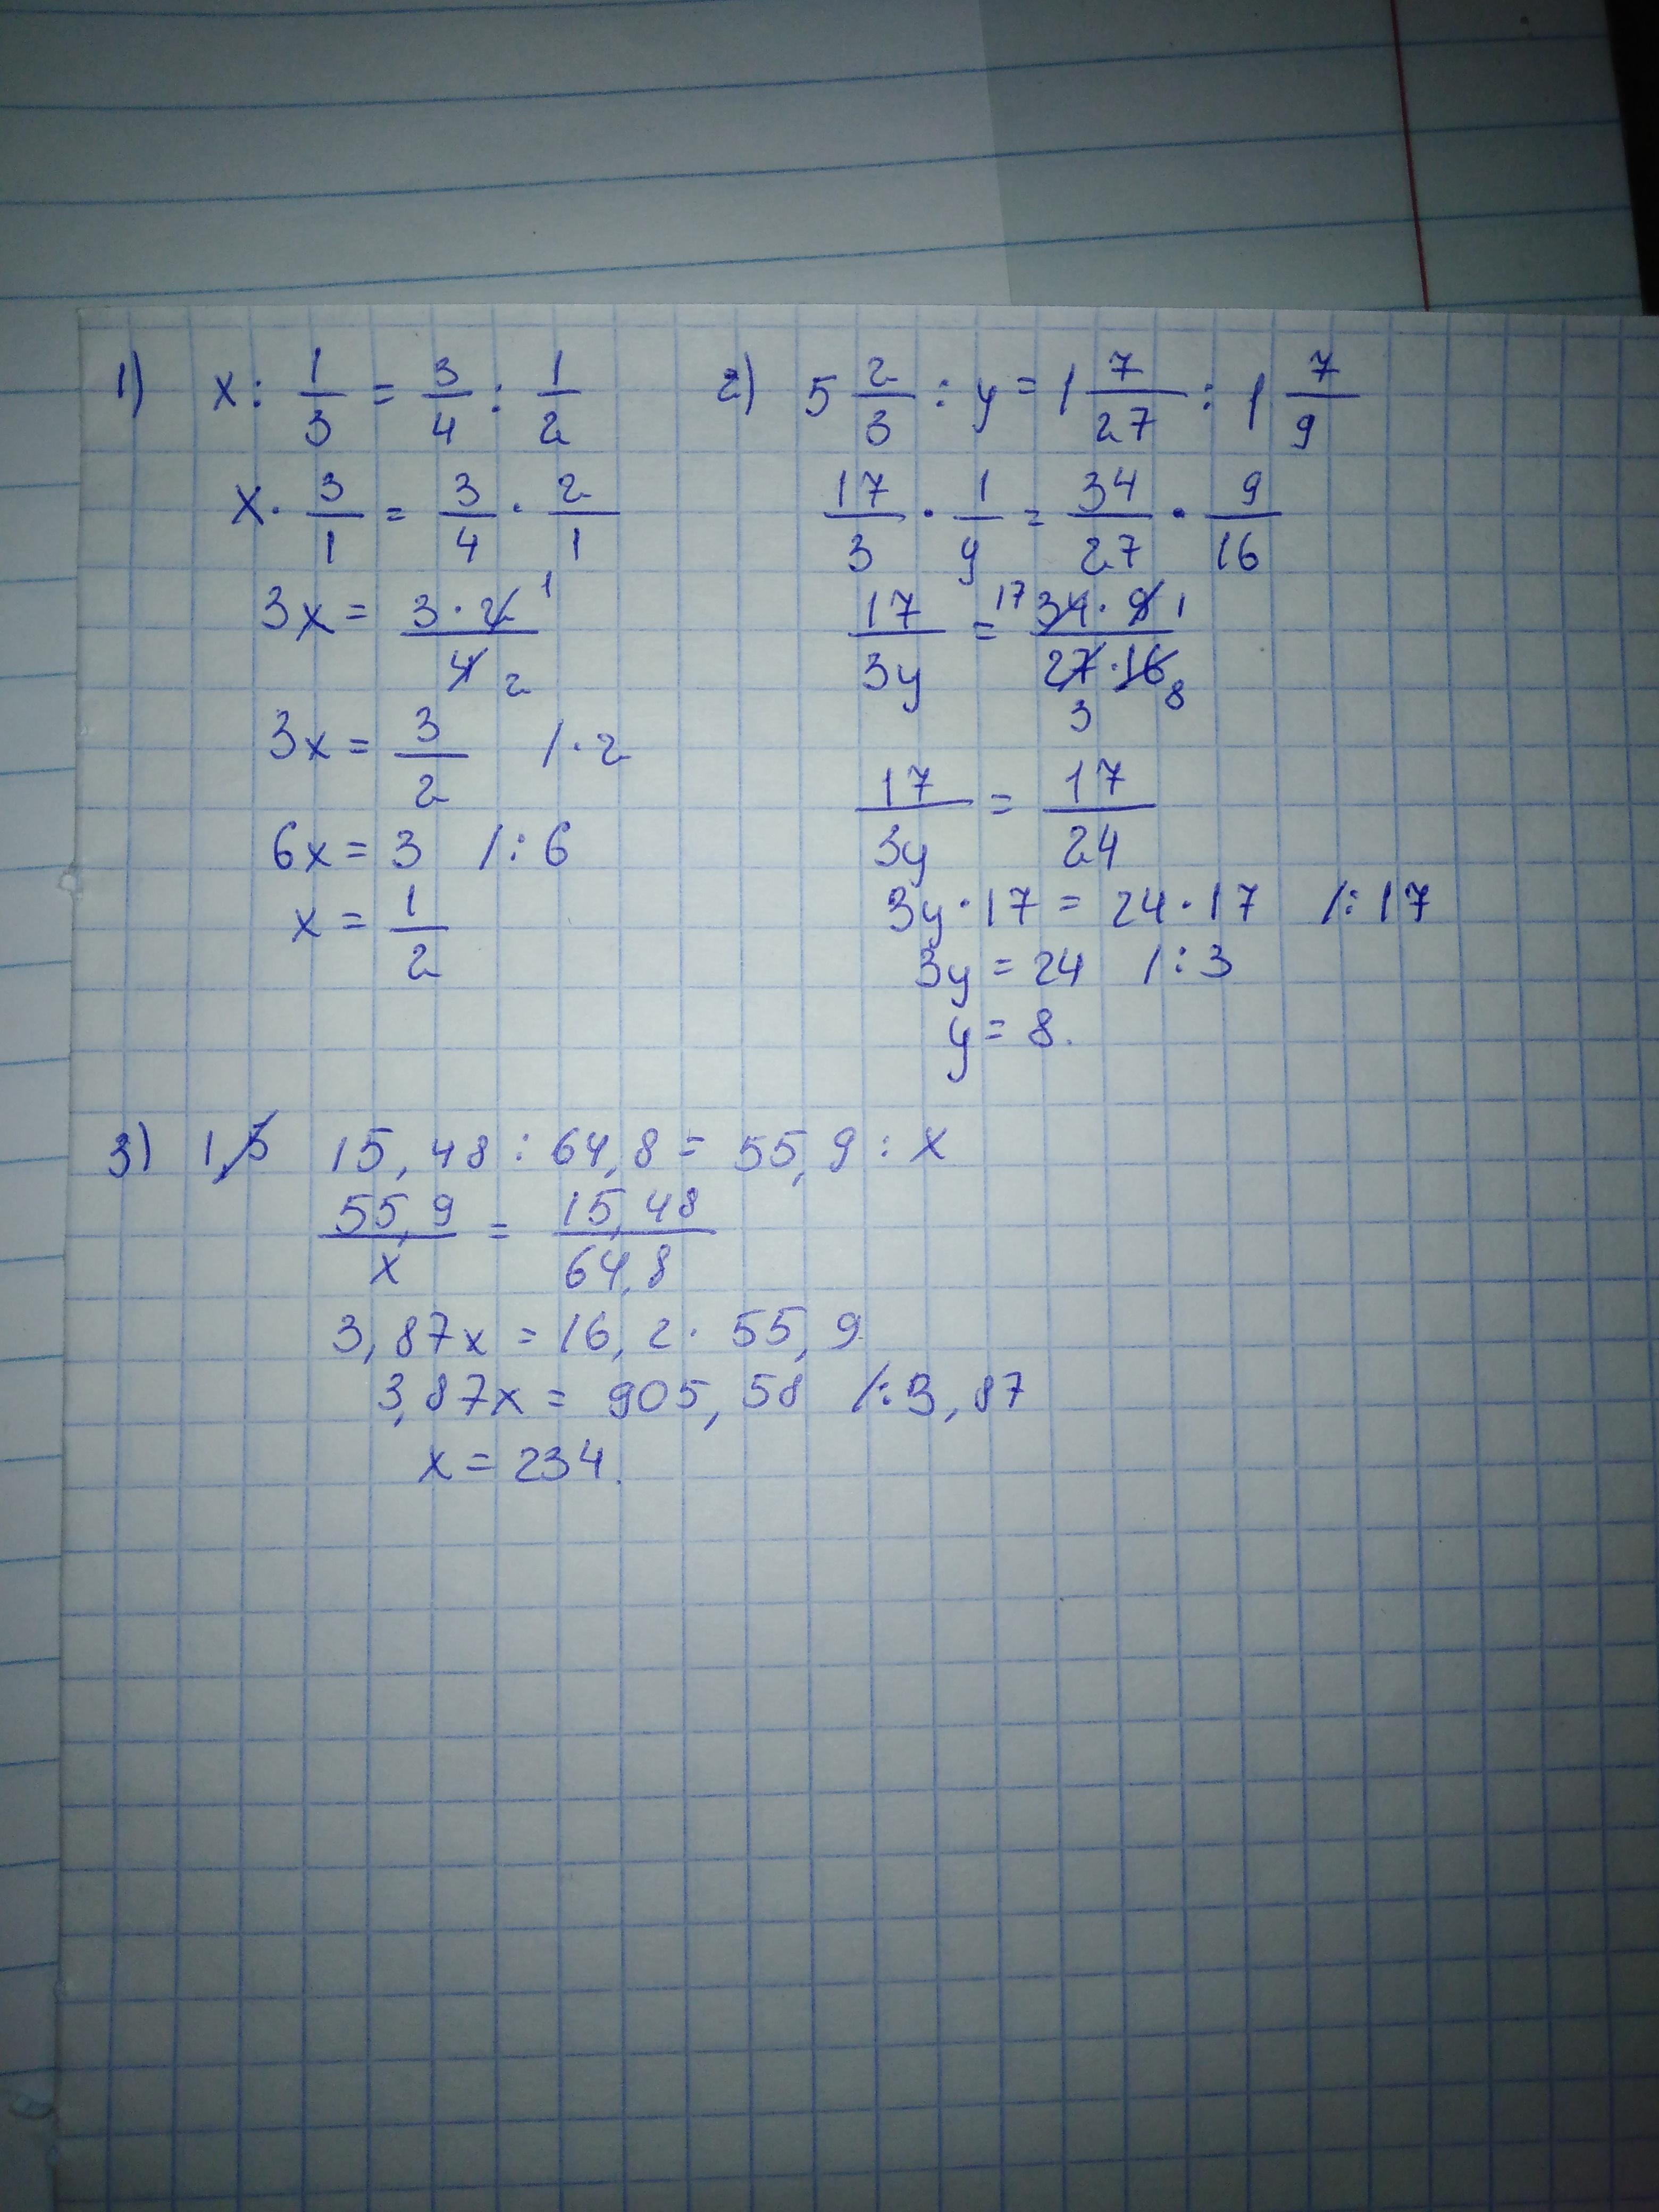 1) x : 1/3 = 3/4 : 1/2
x · 3/1 = 3/4 · 2/1
3x = 3 · 2 1 / 4 2
3x = 3/2 /· 2
6x = 3 /: 6
x = 1/2
2) 5 2/3 : y = 1 7/27 : 1 7/9
17/3 · 1/y = 34/27 · 9/16
17/3y = 17 34 · 9 1 / 27 · 16 3 8
17/3y = 17/24
3y · 17 = 24 · 17 /: 17
3y = 24 /: 3
y = 8.
3) 1,5 15,48 : 64,8 = 55,9 : x
55,9/x = 15,48/64,8
3,87x = 16,2 · 55,9
3,87x = 905,58 /: 3,87
x = 234.